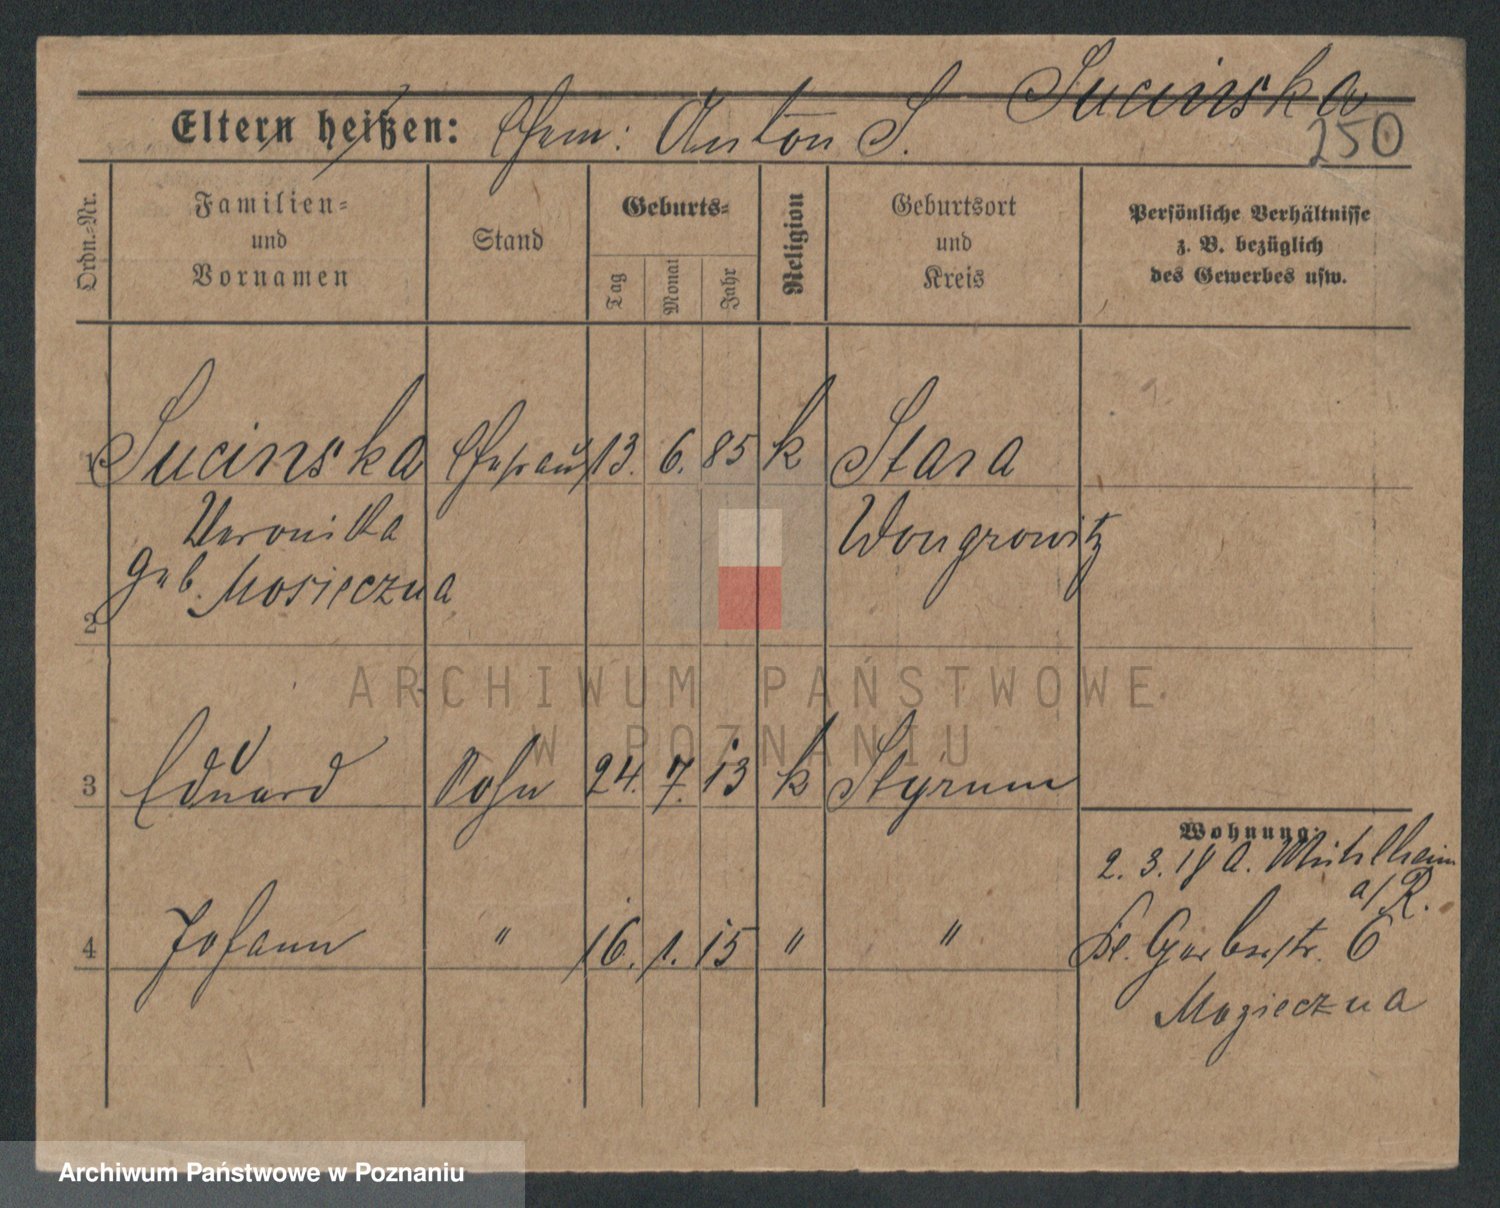 Sucinska
Eltern heißen: Ehem: Anton S.
250
Ordn.-Nr.
Familien-
und
Vornamen
Stand
Geburts-
Tag
Monat
Jahr
Religion
Geburtsort
und
Kreis
Persönliche Verhältnisse
z. B. bezüglich
des Gewerbes usw.
1 Sucinska Ehefrau 13. 6. 85 k Stara
Veronika Wongrowitz
geb. Mosieczna
2
3 Eduard Sohn 24. 7. 13 k Styrum
Wohnung:
2. 3. 18 a. Mühlheim
a/R.
4 Johann " 16. 1. 15 " "
Kl. Gerberstr. 6
Mozieczna
ARCHIWUM PAŃSTWOWE
W POZNANIU
Archiwum Państwowe w Poznaniu